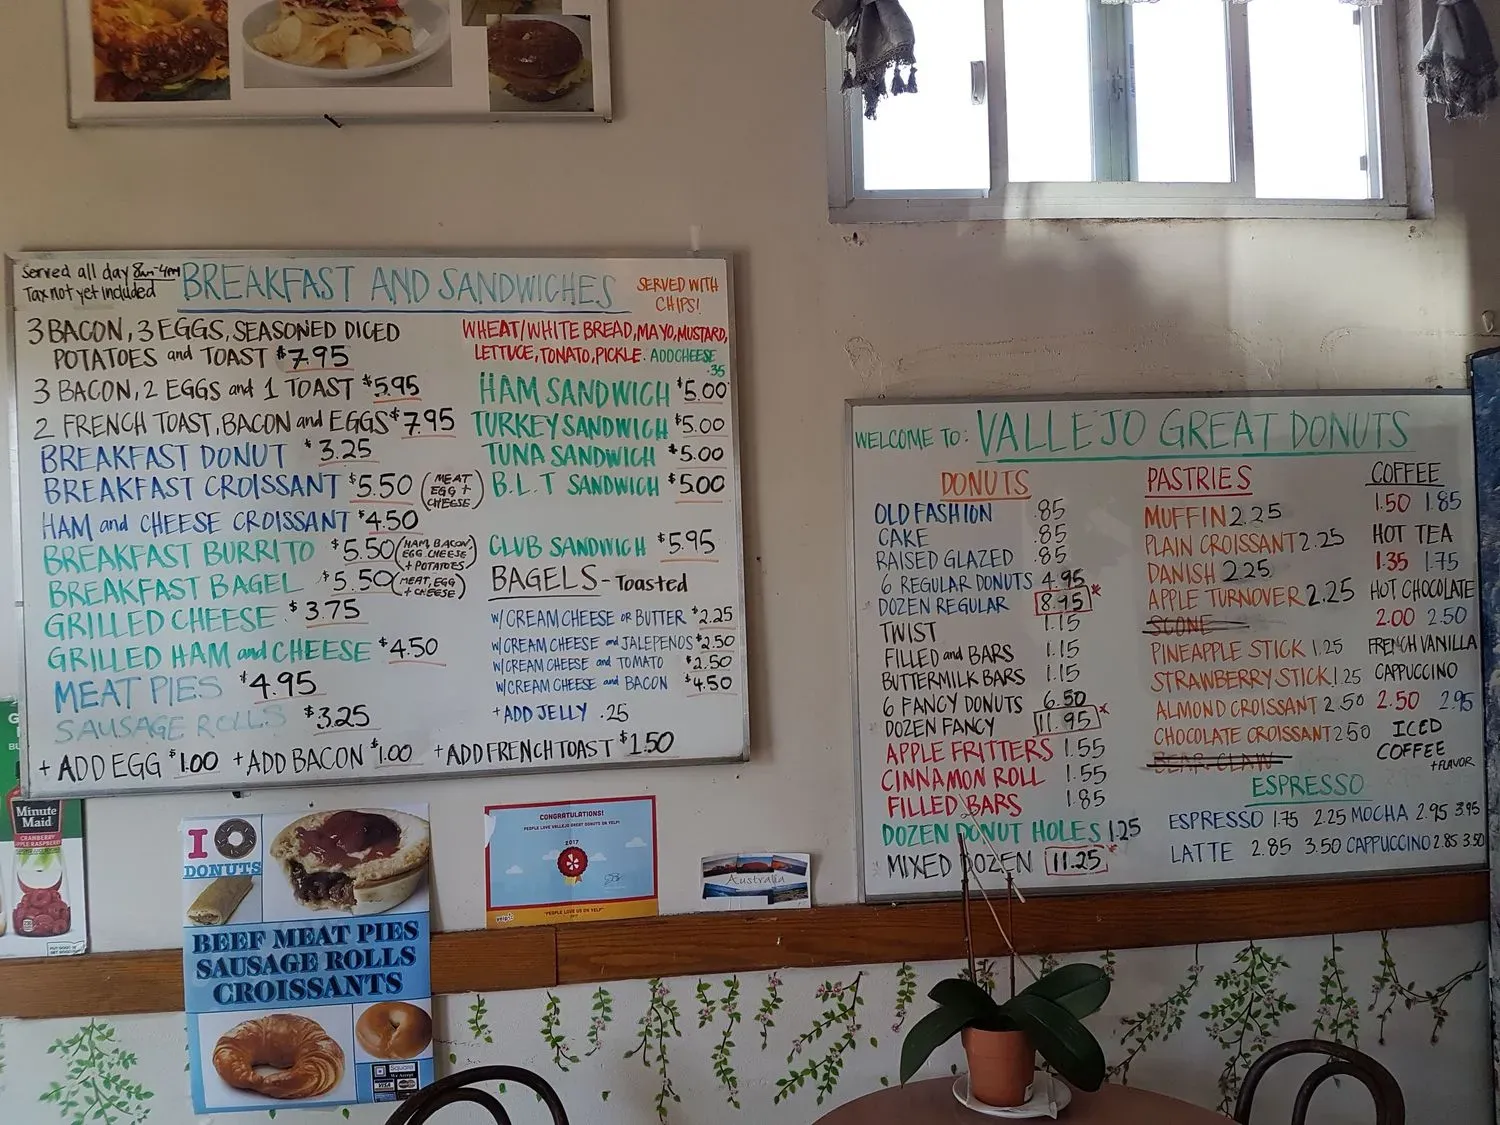 Served all day 8am-4pm
Tax not yet included
BREAKFAST AND SANDWICHES
SERVED WITH
CHIPS!
3 BACON, 3 EGGS, SEASONED DICED
POTATOES and TOAST $7.95
3 BACON, 2 EGGS and 1 TOAST $5.95
2 FRENCH TOAST, BACON and EGGS $7.95
BREAKFAST DONUT $3.25
BREAKFAST CROISSANT $5.50 (MEAT
EGG +
CHEESE)
HAM and CHEESE CROISSANT $4.50
BREAKFAST BURRITO $5.50 (HAM, BACON
EGG CHEESE
+ POTATOES)
BREAKFAST BAGEL $5.50 (MEAT, EGG
+ CHEESE)
GRILLED CHEESE $3.75
GRILLED HAM and CHEESE $4.50
MEAT PIES $4.95
SAUSAGE ROLLS $3.25
+ ADD EGG $1.00 + ADD BACON $1.00 + ADD FRENCH TOAST $1.50
WHEAT/WHITE BREAD, MAYO, MUSTARD,
LETTUCE, TONATO, PICKLE. ADD CHEESE
.35
HAM SANDWICH $5.00
TURKEY SANDWICH $5.00
TUNA SANDWICH $5.00
B.L.T SANDWICH $5.00
CLUB SANDWICH $5.95
BAGELS - Toasted
W/CREAM CHEESE OR BUTTER $2.25
W/CREAM CHEESE and JALEPENOS $2.50
W/CREAM CHEESE and TOMATO $2.50
W/CREAM CHEESE and BACON $4.50
+ ADD JELLY .25
WELCOME TO: VALLEJO GREAT DONUTS
DONUTS
OLD FASHION .85
CAKE .85
RAISED GLAZED .85
6 REGULAR DONUTS 4.95
DOZEN REGULAR 8.95*
TWIST 1.15
FILLED and BARS 1.15
BUTTERMILK BARS 1.15
6 FANCY DONUTS 6.50
DOZEN FANCY 11.95*
APPLE FRITTERS 1.55
CINNAMON ROLL 1.55
FILLED BARS 1.85
DOZEN DONUT HOLES 1.25
MIXED DOZEN 11.25*
PASTRIES
MUFFIN 2.25
PLAIN CROISSANT 2.25
DANISH 2.25
APPLE TURNOVER 2.25
SCONE
PINEAPPLE STICK 1.25
STRAWBERRY STICK 1.25
ALMOND CROISSANT 2.50
CHOCOLATE CROISSANT 2.50
BEAR CLAW
COFFEE
1.50 1.85
HOT TEA
1.35 1.75
HOT CHOCOLATE
2.00 2.50
FRENCH VANILLA
CAPPUCCINO
2.50 2.95
ICED
COFFEE
+FLAVOR
ESPRESSO
ESPRESSO 1.75 2.25 MOCHA 2.95 3.95
LATTE 2.85 3.50 CAPPUCCINO 2.85 3.50
Minute
Maid
CRANBERRY
APPLE RASPBERRY
I
DONUTS
BEEF MEAT PIES
SAUSAGE ROLLS
CROISSANTS
Square
We Accept
VISA
CONGRATULATIONS!
PEOPLE LOVE VALLEJO GREAT DONUTS ON YELP!
2017
"PEOPLE LOVE US ON YELP"
yelp
Australia